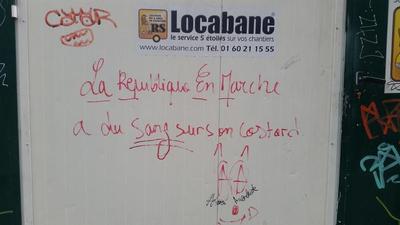 Locabane
RS
le service 5 étoiles sur vos chantiers
www.locabane.com Tél. 01 60 21 15 55
La République En Marche
a du Sang surs on costard
A A
D